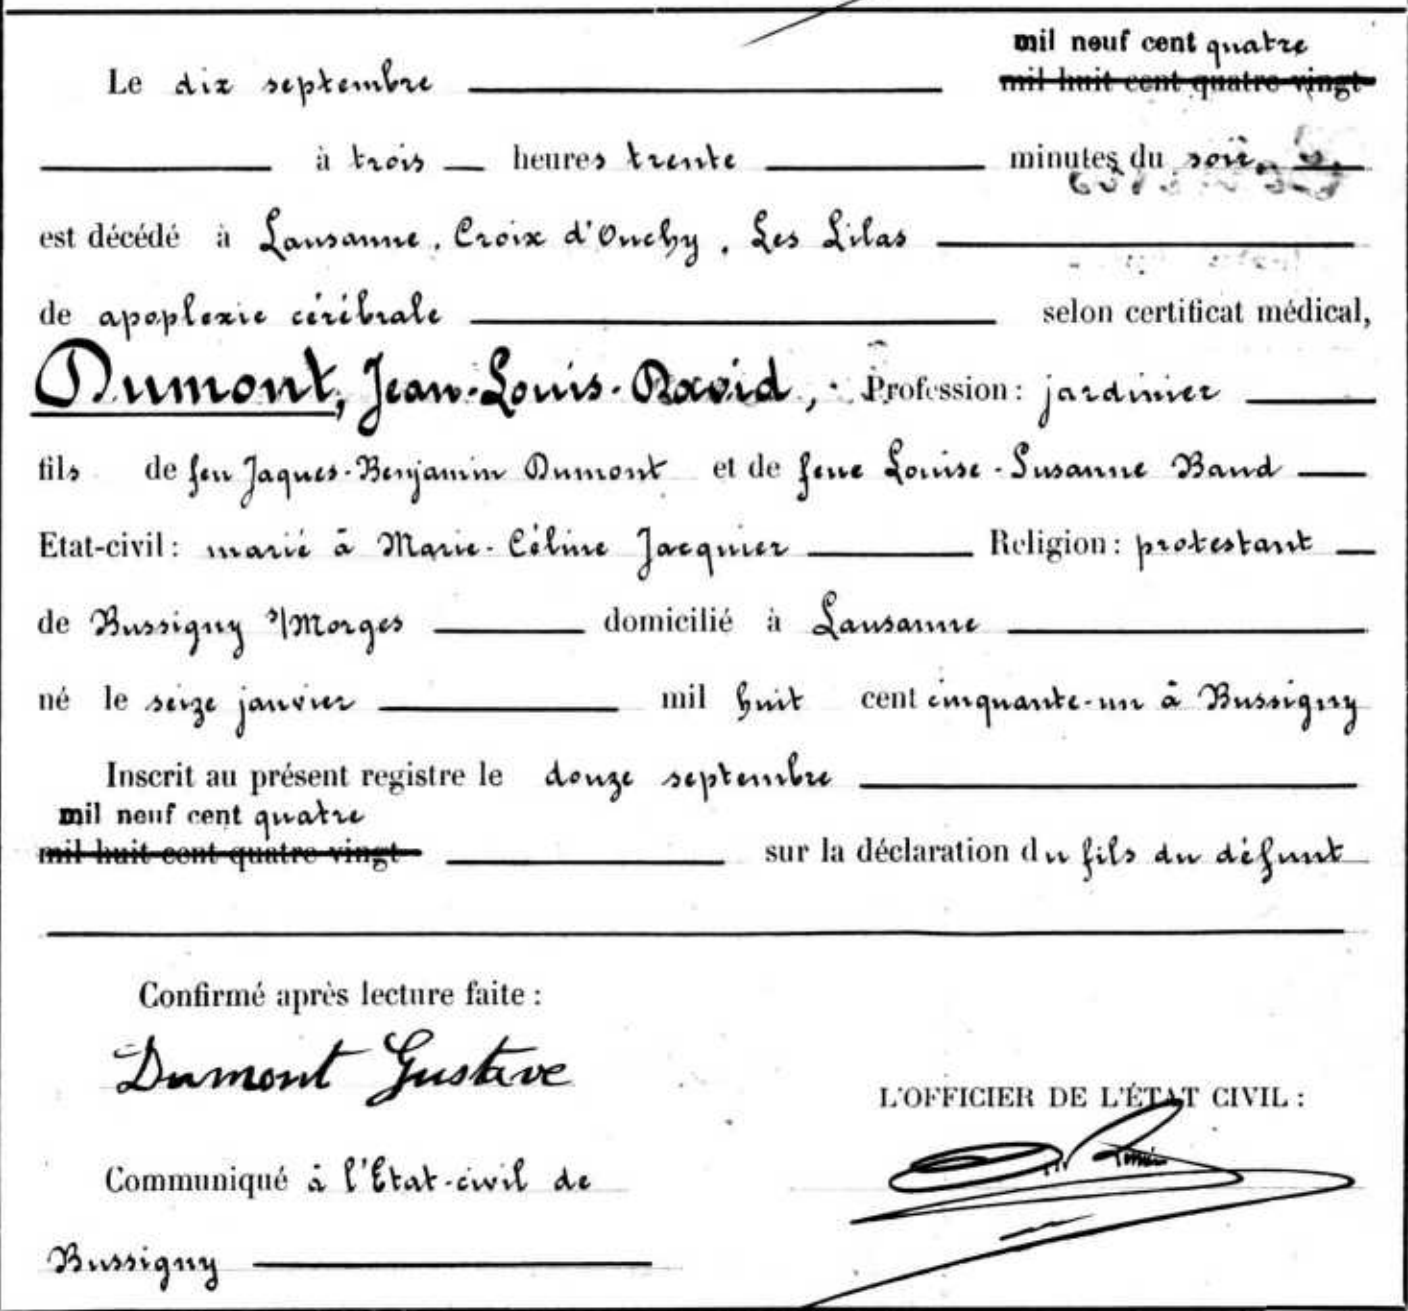 mil neuf cent quatre
Le dix septembre mil huit cent quatre-vingt
à trois heures trente minutes du soir
est décédé à Lausanne, Croix d'Ouchy, Les Lilas
de apoplexie cérébrale selon certificat médical,
Dumont, Jean-Louis-David, Profession : jardinier
fils de feu Jaques-Benjamin Dumont et de feue Louise-Susanne Baud
Etat-civil : marié à Marie-Céline Jacquier Religion : protestant
de Bussigny s/Morges domicilié à Lausanne
né le seize janvier mil huit cent cinquante-un à Bussigny
Inscrit au présent registre le douze septembre
mil neuf cent quatre
mil huit cent quatre-vingt sur la déclaration du fils du défunt
Confirmé après lecture faite :
Dumont Gustave
L'OFFICIER DE L'ÉTAT CIVIL :
Communiqué à l'Etat-civil de
Bussigny